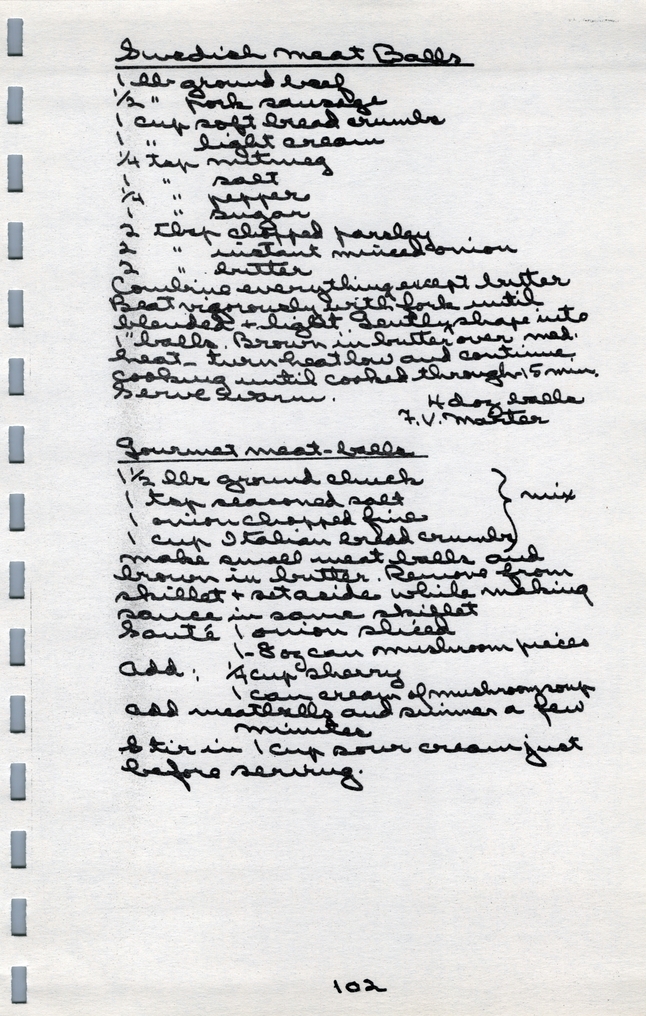 Swedish Meat Balls
1 lb ground beef
1/2 " pork sausage
1 cup soft bread crumbs
1 " light cream
1/4 tsp nutmeg
1 " salt
1/4 " pepper
1 " sugar
2 tbsp chopped parsley
2 " instant minced onion
2 " butter
Combine everything except butter
Beat vigorously with fork until
blended + light. Gently shape into
1" balls. Brown in butter over med.
heat - turn heat low and continue
cooking until cooked through, 15 min.
Serve warm. 4 doz balls
F.V.
Gourmet meat-balls
1 1/2 lbs ground chuck
1 tsp seasoned salt } mix
1 onion chopped fine
1 cup Italian bread crumbs
make small meat balls and
brown in butter. Remove from
skillet + set aside while making
sauce in same skillet
Sauté 1 onion sliced
1-8 oz can mushroom pieces
add: 1/4 cup sherry
1 can cream of mushroom soup
add meatballs and simmer a few
minutes
Stir in 1 cup sour cream just
before serving.
102